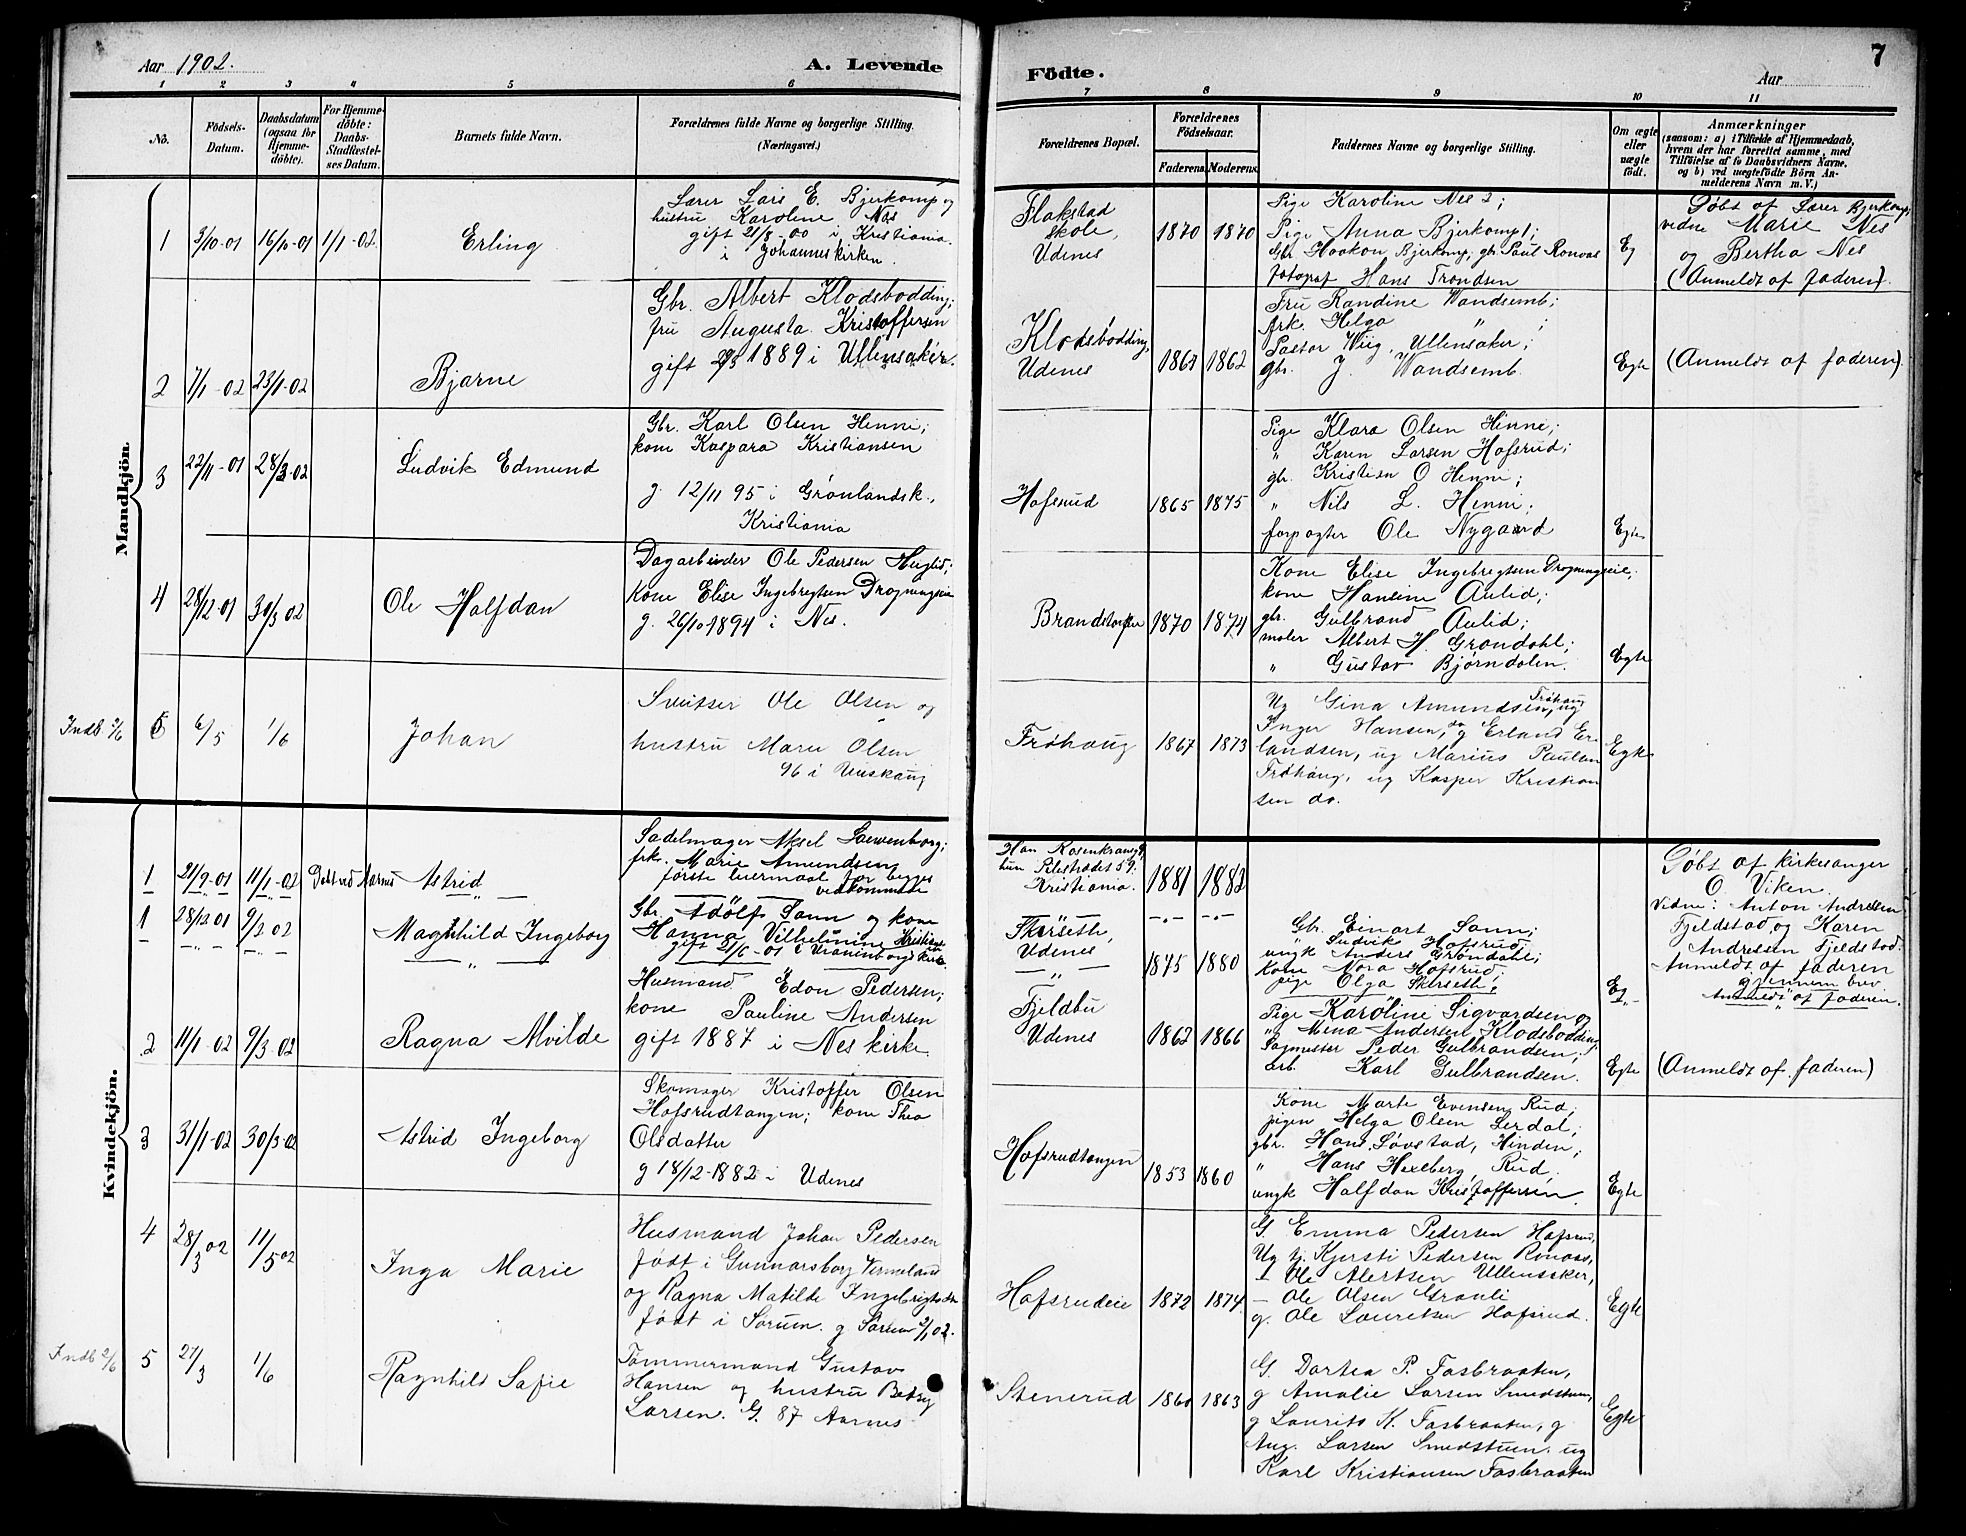 Aar 1902.
A. Levende
1 2 3 4 5 6
No.
Födsels-
Datum.
Daabsdatum
(ogsaa for
Hjemme-
döbte).
For Hjemme-
döbte:
Daabs-
Stadfæstel-
ses Datum.
Barnets fulde Navn.
Forældrenes fulde Navne og borgerlige Stilling.
(Næringsvei.)
Mandkjön.
1 3/10-01 16/10-01 1/1-02. Erling
Lærer Lars E. Bjerkomp og
hustru Karoline Nes
gift 21/8-00 i Kristiania
i Johanneskirken.
2 7/1-02 23/1-02 Bjarne
Gbr. Albert Klodsbødding;
fru Augusta Kristoffersen
gift 1889 i Ullensaker.
3 22/11-01 28/3-02 Ludvik Edmund
Gbr. Karl Olsen Henni;
kone Kaspara Kristiansen
g. 12/11 95 i Grønlandsk.,
Kristiania
4 28/12-01 30/3 02 Ole Halfdan
Dagarbeider Ole Pedersen Huglid;
kone Elise Ingebregtsen Drognungseie
g. 26/10 1894 i Nes.
Indb. 2/6 5 6/5 1/6 Johan
Sveitser Ole Olsen og
hustru Marie Olsen
96 i
Kvindekjön.
1 21/9-01 11/1-02 Døbt ved Aarnes Astrid
Sadelmager Aksel
frk. Marie Amundsen
første leiermaal for begges
vedkommende
1 28/12 01 9/2 02 Magnhild Ingeborg
Gbr. Adolf Sann og kone
Hanna Vilhelmine Kristiansen
gift 21/6-01 i Uranienborg kirke.
2 11/1-02 9/3-02 Ragna Alvilde
Husmand Edon Pedersen;
kone Pauline Andersen
gift 1887 i Nes kirke.
3 31/1-02 30/3-02 Astrid Ingeborg
Skomager Kristoffer Olsen
Hofsrudtangen; kone Thea
Olsdatter
g 18/12-1882 i Udenes
4 28/3 02 11/5 02 Inga Marie
Husmand Johan Pedersen
født i Gunnarsborg Vermeland
og Ragna Matilde Ingebrigtsdtr
født i Sørum. g Sørum 3/1 02.
Indb 2/6 5 27/3 1/6 Ragnhild Sofie
Tømmermand Gustav
Hansen og hustru Betsy
Larsen. G. 87 Aarnes
7
Födte.
Aar
7 8 9 10 11
Forældrenes Bopæl.
Forældrenes
Födselsaar.
Faderens Moderens
Faddernes Navne og borgerlige Stilling.
Om ægte
eller
uægte
födt.
Anmærkninger
(saasom: a) i Tilfælde af Hjemmedaab,
hvem der har forrettet samme, med
Tilföielse af to Daabsvidners Navne,
og b) ved uægtefödte Börn An-
melderens Navn m. V.)
Flakstad
skole,
Udenes
1870 1870
Pige Karoline Nes 2;
Pige Anna Bjerkomp 1;
Gbr Haakon Bjerkomp; gbr Paul Ronvas
fotograf Hans Trondsen
Eg
Døbt af Lærer Bjerkomp,
vidne Marie Nes
og Bertha Nes
(Anmeldt af faderen).
Klodsbødding,
Udenes
1861 1862
Fru Randine Wandsemb;
frk. Helga " ;
Pastor Wiig, Ullensaker;
gbr. J. Wandsemb.
Egte
(Anmeldt af faderen).
Hofsrud
1865 1875
Pige Klara Olsen Hinne;
" Karen Larsen Hofsrud;
gbr. Kristian O Henni;
" Nils L. Henni;
forpagter Ole Nygaard
Egte
1870 1874
Kone Elise Ingebregtsen Drognungseie;
kone Hansine Aulid;
gbr. Gulbrand Aulid;
maler Albert H. Grøndahl;
" Gustav Bjørndalen.
Egte
Frøhaug
1867 1873
Ug Gina Amundsen, Frøhaug ug
Inger Hansen, do g Erland Er-
landsen, ug Marius Paulsen
Frøhaug, ug Kasper Kristian
sen do.
Egte
Han Rosenkransg 9,
hun Pilestrædet 59.
Kristiania.
1881 1882
Døbt af kirkesanger
O. Viken.
Vidne: Anton Andresen
Fjeldstad og Karen
Andresen Fjeldstad.
Anmeldt af faderen
gjennem brev.
Skjerseth,
Udenes
1875 1880
Gbr. Einart Sann;
" Ludvik Hofsrud;
ungk Anders Grøndahl;
kone Nora Hofsrud;
pige Olga Skjerseth;
Eg
Anmeldt af faderen.
Fjeldbu
Udenes
1862 1866
Pige Karoline Sigvardsen og
" Mina Andersen Klodsbødding;
Sagmester Peder Gulbrandsen;
arb. Karl Gulbrandsen.
Egte
(Anmeldt af faderen)
Hofsrudtangen
1853 1860
Kone Marte Evensen Rud;
pigen Helga Olsen Lerdal;
gbr. Hans Løvstad, Hinden;
" Hans Hexeberg Rud.
ungk Halfdan Kristoffersen.
Egte
Hofsrudeie
1872 1874
G. Emma Pedersen Hofsrud,
Ug tj. Kjersti Pedersen Ronaas,
Ole Alertsen Ullensaker,
— Ole Olsen Granli
g. Ole Lauretsen Hofsrud.
Egte
Stenerud
1860 1863
G. Dortea P. Fasbraaten,
g Amalie Larsen Smedstuen,
g Laurits K. Fasbraaten, g
Aug. Larsen Smedstuen. ug
Karl Kristiansen Fasbraaten
Egte